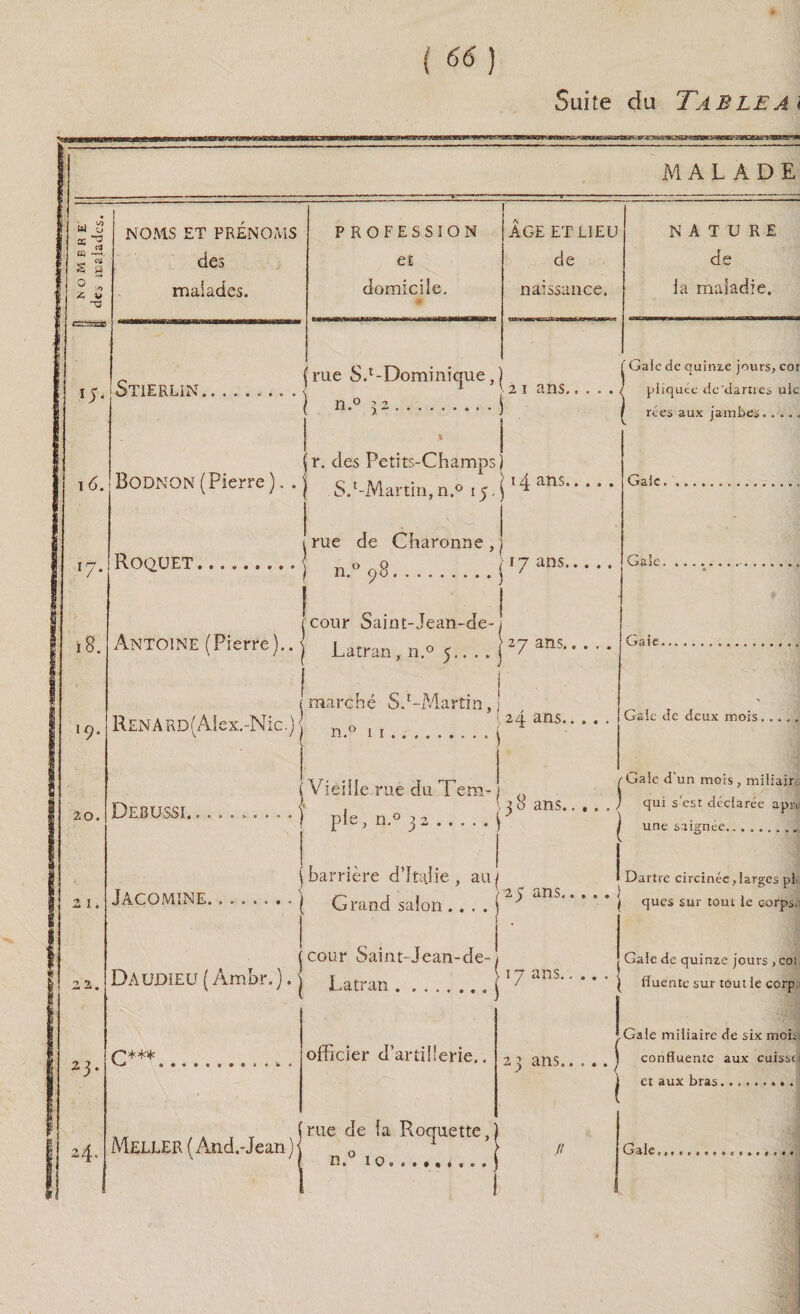 ( 66 )
Suite du TABLEA
MALADE
NOMBRE des malades.
NOMS ET PRÉNOMS des malades.
PROFESSION et domicile.
ÂGE ET LIEU de naissance.
NATURE de la maladie.
15. STIERLIN.......... rue S.t-Dominique, n.º 32.......... 21 ans..... Gale de quinze jours, com
pliquée de dartres ulc
rées aux jambes.....
16. BODNON (Pierre).. r. des Petits-Champs S.t-Martin, n.º 15. 14 ans..... Gale...............
17. ROQUET.......... rue de Charonne, n.º 98.......... 17 ans..... Gale...............
18. ANTOINE (Pierre).. cour Saint-Jean-de-Latran, n.º 5.... 27 ans..... Gale...............
19. RENARD (Alex.-Nic.) marché S.t-Martin, n.º 11.......... 24 ans..... Gale de deux mois.....
20. DEBUSSI.......... Vieille rue du Tem-
ple, n.º 32..... 38 ans..... Gale d'un mois, miliair
qui s'est déclarée apr
une saignée.........
21. JACOMINE........ barrière d'Italie, au
Grand salon.... 25 ans..... Dartre circinée, larges pl
ques sur tout le corps.
22. DAUDIEU (Ambr.). cour Saint-Jean-de-
Latran......... 17 ans..... Gale de quinze jours, co
fluente sur tout le corp
23. C***............ officier d'artillerie.. 23 ans..... Gale miliaire de six mois
confluente aux cuisse
et aux bras.........
24. MELLER (And.-Jean) rue de la Roquette,
n.º 10.......... // Gale...............